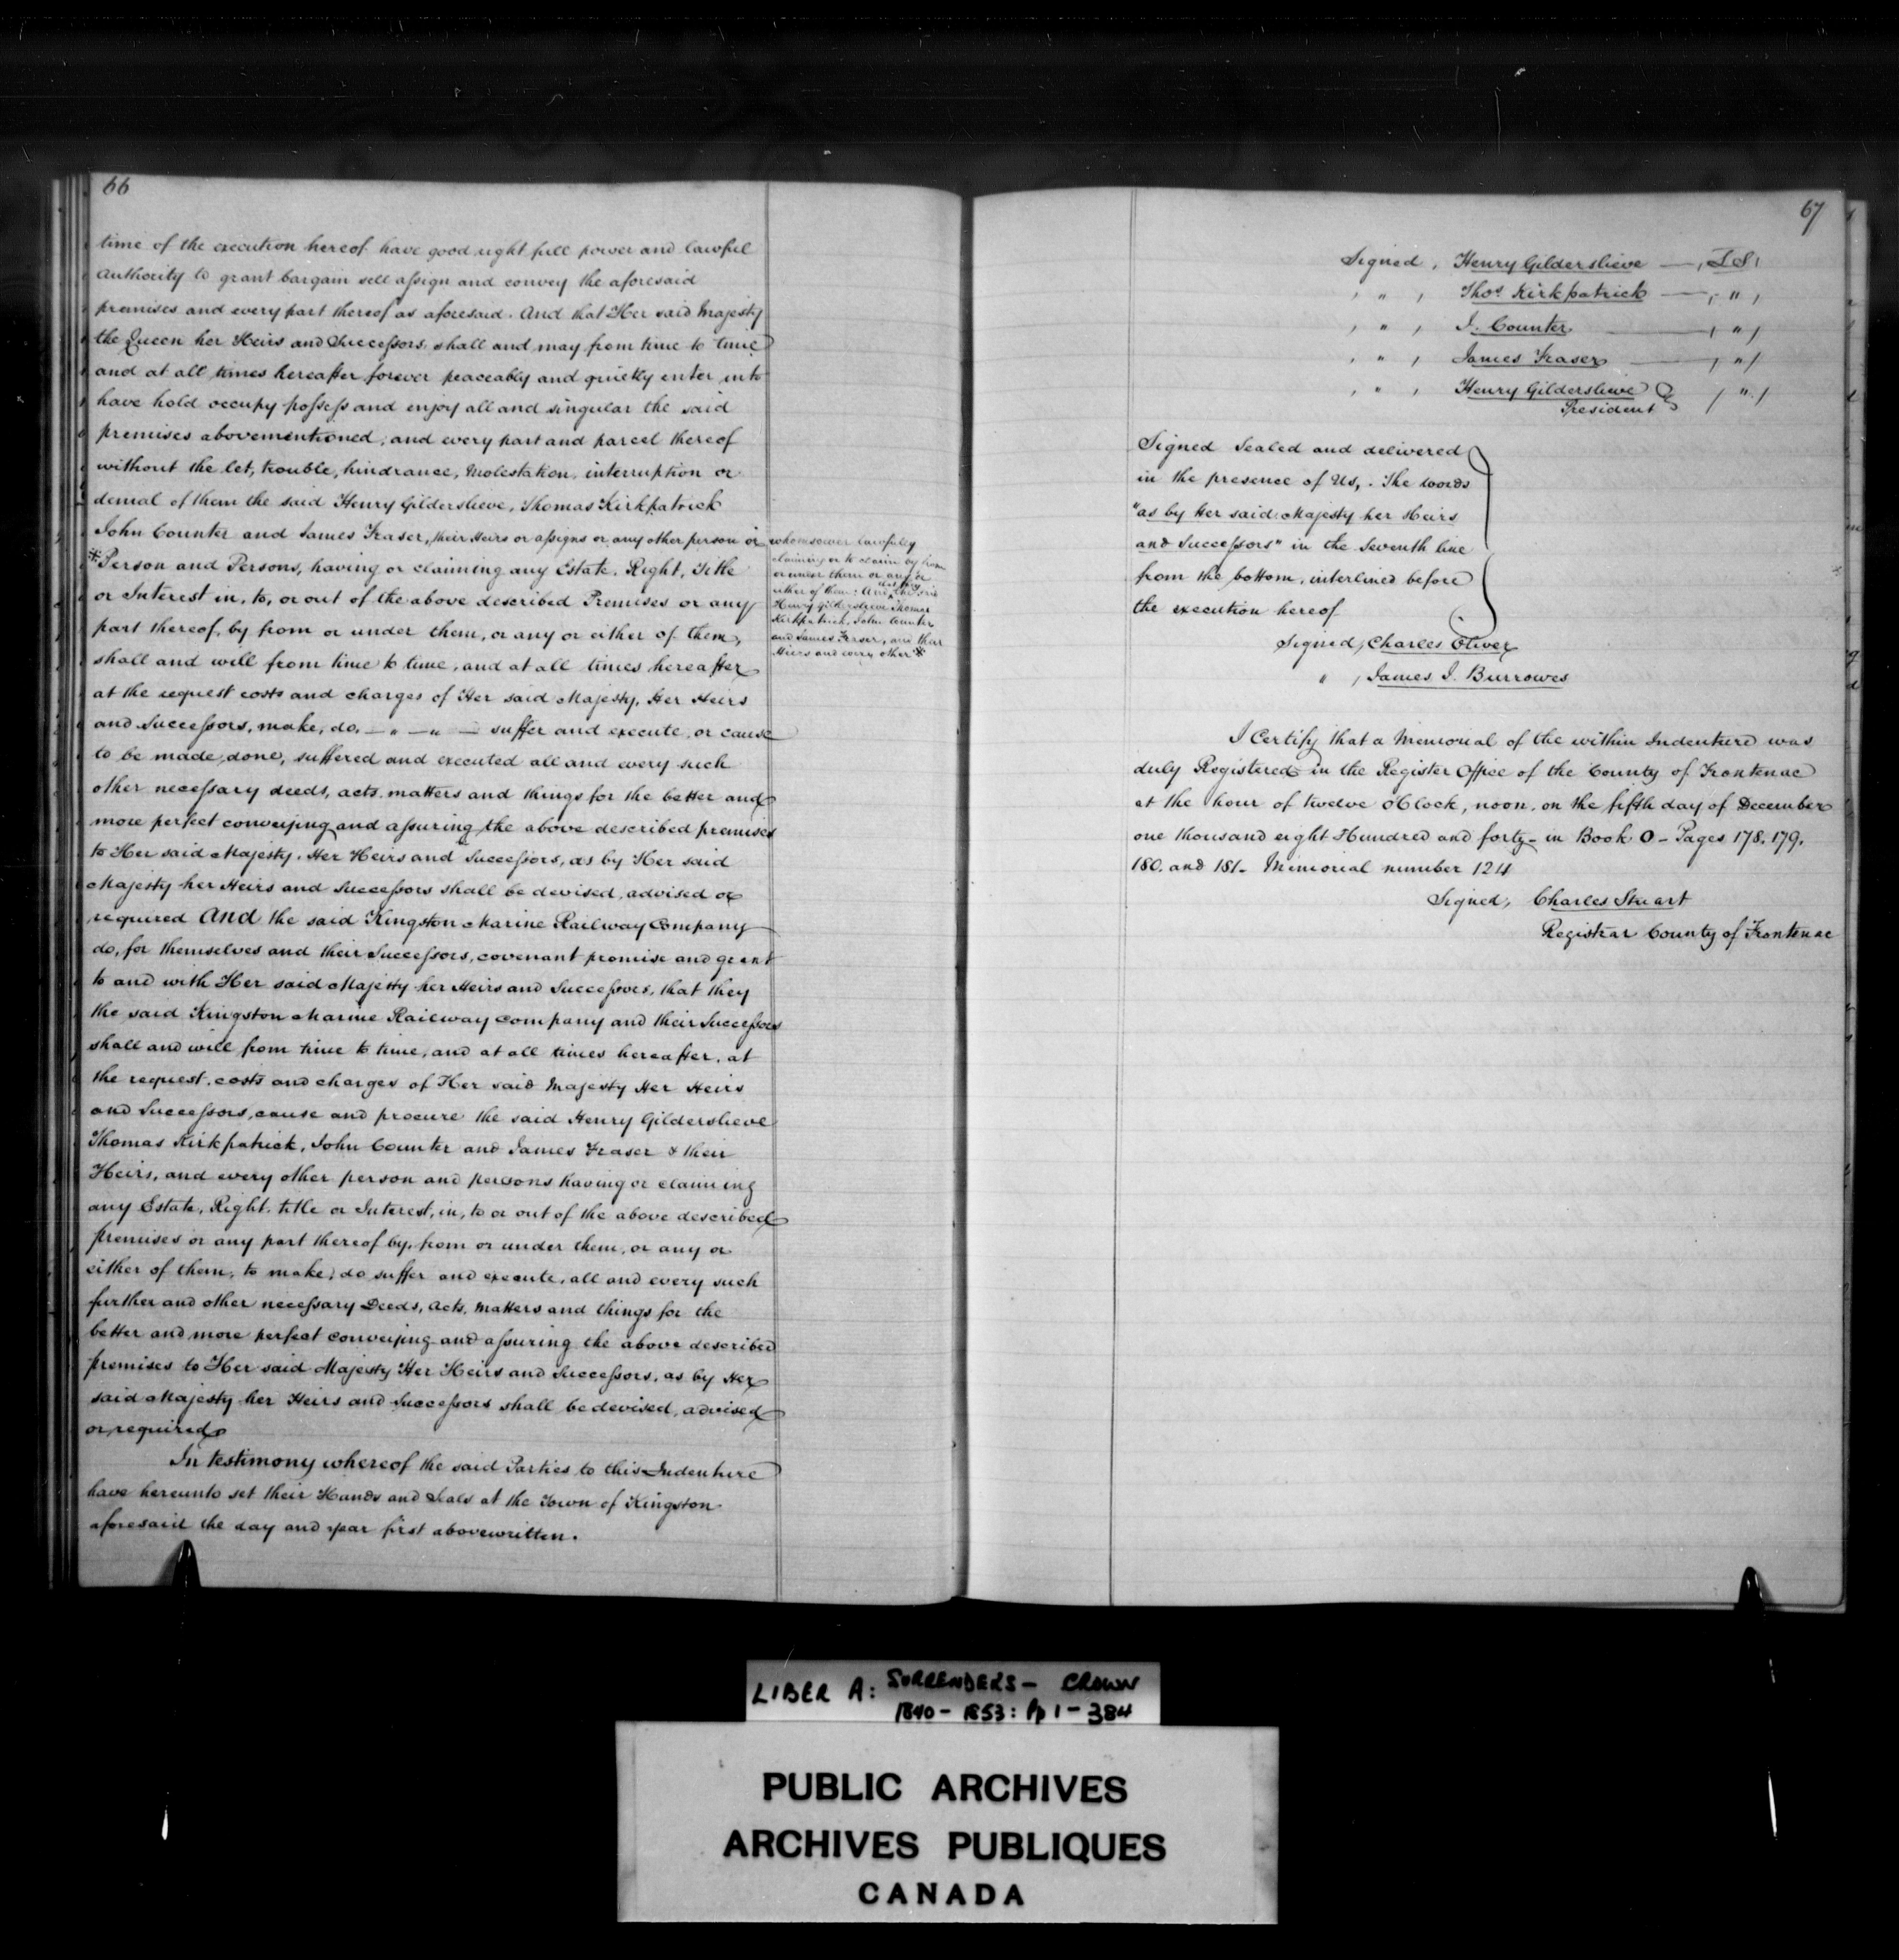 66
time of the execution hereof have good right full power and lawful
authority to grant bargain sell assign and convey the aforesaid
premises and every part thereof as aforesaid. And that Her said Majesty
the Queen her Heirs and Successors, shall and may from time to time
and at all times hereafter forever peaceably and quietly enter into
have hold occupy possess and enjoy all and singular the said
premises abovementioned, and every part and parcel thereof
without the let, trouble, hindrance, molestation, interruption or
denial of them the said Henry Gilderslieve, Thomas Kirkpatrick
John Counter and James Fraser, their Heirs or assigns or any other person or
whomsoever lawfully
claiming or to claim by from
or under them or any or
either of them: And that they the said
Henry Gilderslieve Thomas
Kirkpatrick, John Counter
and James Fraser, and their
Heirs and every other *
* Person and Persons, having or claiming any Estate, Right, Title
or Interest in, to, or out of the above described Premises or any
part thereof, by from or under them, or any or either of them,
shall and will from time to time, and at all times hereafter
at the request costs and charges of Her said Majesty, Her Heirs
and Successors, make, do, — " — " — suffer and execute, or cause
to be made, done, suffered and executed all and every such
other necessary deeds, acts, matters and things for the better and
more perfect conveying and assuring the above described premises
to Her said Majesty, Her Heirs and Successors, as by Her said
Majesty her Heirs and Successors shall be devised, advised or
required And the said Kingston Marine Railway Company
do, for themselves and their Successors, covenant promise and grant
to and with Her said Majesty her Heirs and Successors, that they
the said Kingston Marine Railway Company and their Successors
shall and will from time to time, and at all times hereafter, at
the request, costs and charges of Her said Majesty Her Heirs
and Successors, cause and procure the said Henry Gilderslieve
Thomas Kirkpatrick, John Counter and James Fraser & their
Heirs, and every other person and persons having or claiming
any Estate, Right, title or Interest, in, to or out of the above described
premises or any part thereof by, from or under them, or any or
either of them, to make, do suffer and execute, all and every such
further and other necessary Deeds, Acts, Matters and things for the
better and more perfect conveying and assuring the above described
premises to Her said Majesty Her Heirs and Successors, as by Her
said Majesty her Heirs and Successors shall be devised, advised
or required
In testimony whereof the said Parties to this Indenture
have hereunto set their Hands and Seals at the Town of Kingston
aforesaid the day and year first abovewritten.
67
Signed, Henry Gilderslieve — , L S ,
, " , Thos Kirkpatrick — , " ,
, " , J. Counter — , " ,
, " , James Fraser — , " ,
, " , Henry Gilderslieve / " /
President
Signed Sealed and delivered
in the presence of Us, . The words
"as by Her said Majesty her Heirs
and Successors" in the Seventh line
from the bottom, interlined before
the execution hereof
Signed, Charles Oliver
" , James J. Burrowes
I Certify that a Memorial of the within Indenture was
duly Registered in the Register Office of the County of Frontenac
at the hour of twelve O'Clock, noon, on the fifth day of December
one thousand eight Hundred and forty - in Book O - Pages 178. 179.
180. and 181 - Memorial number 124
Signed, Charles Stuart
Registrar County of Frontenac
LIBER A: SURRENDERS - CROWN
1840 - 1853: Pp 1 - 384
PUBLIC ARCHIVES
ARCHIVES PUBLIQUES
CANADA